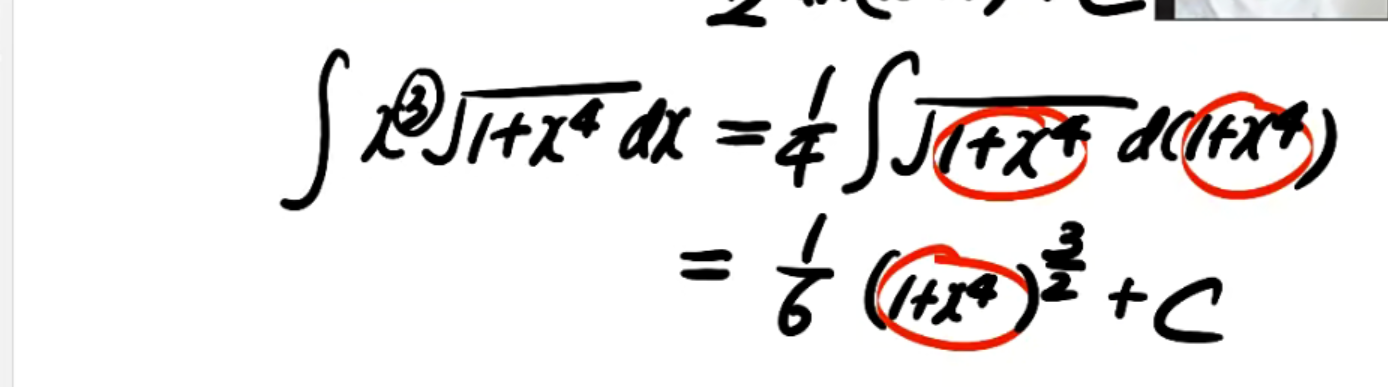 ∫ x³√(1+x⁴) dx = 1/4 ∫ √(1+x⁴) d(1+x⁴)
= 1/6 (1+x⁴)^(3/2) + C